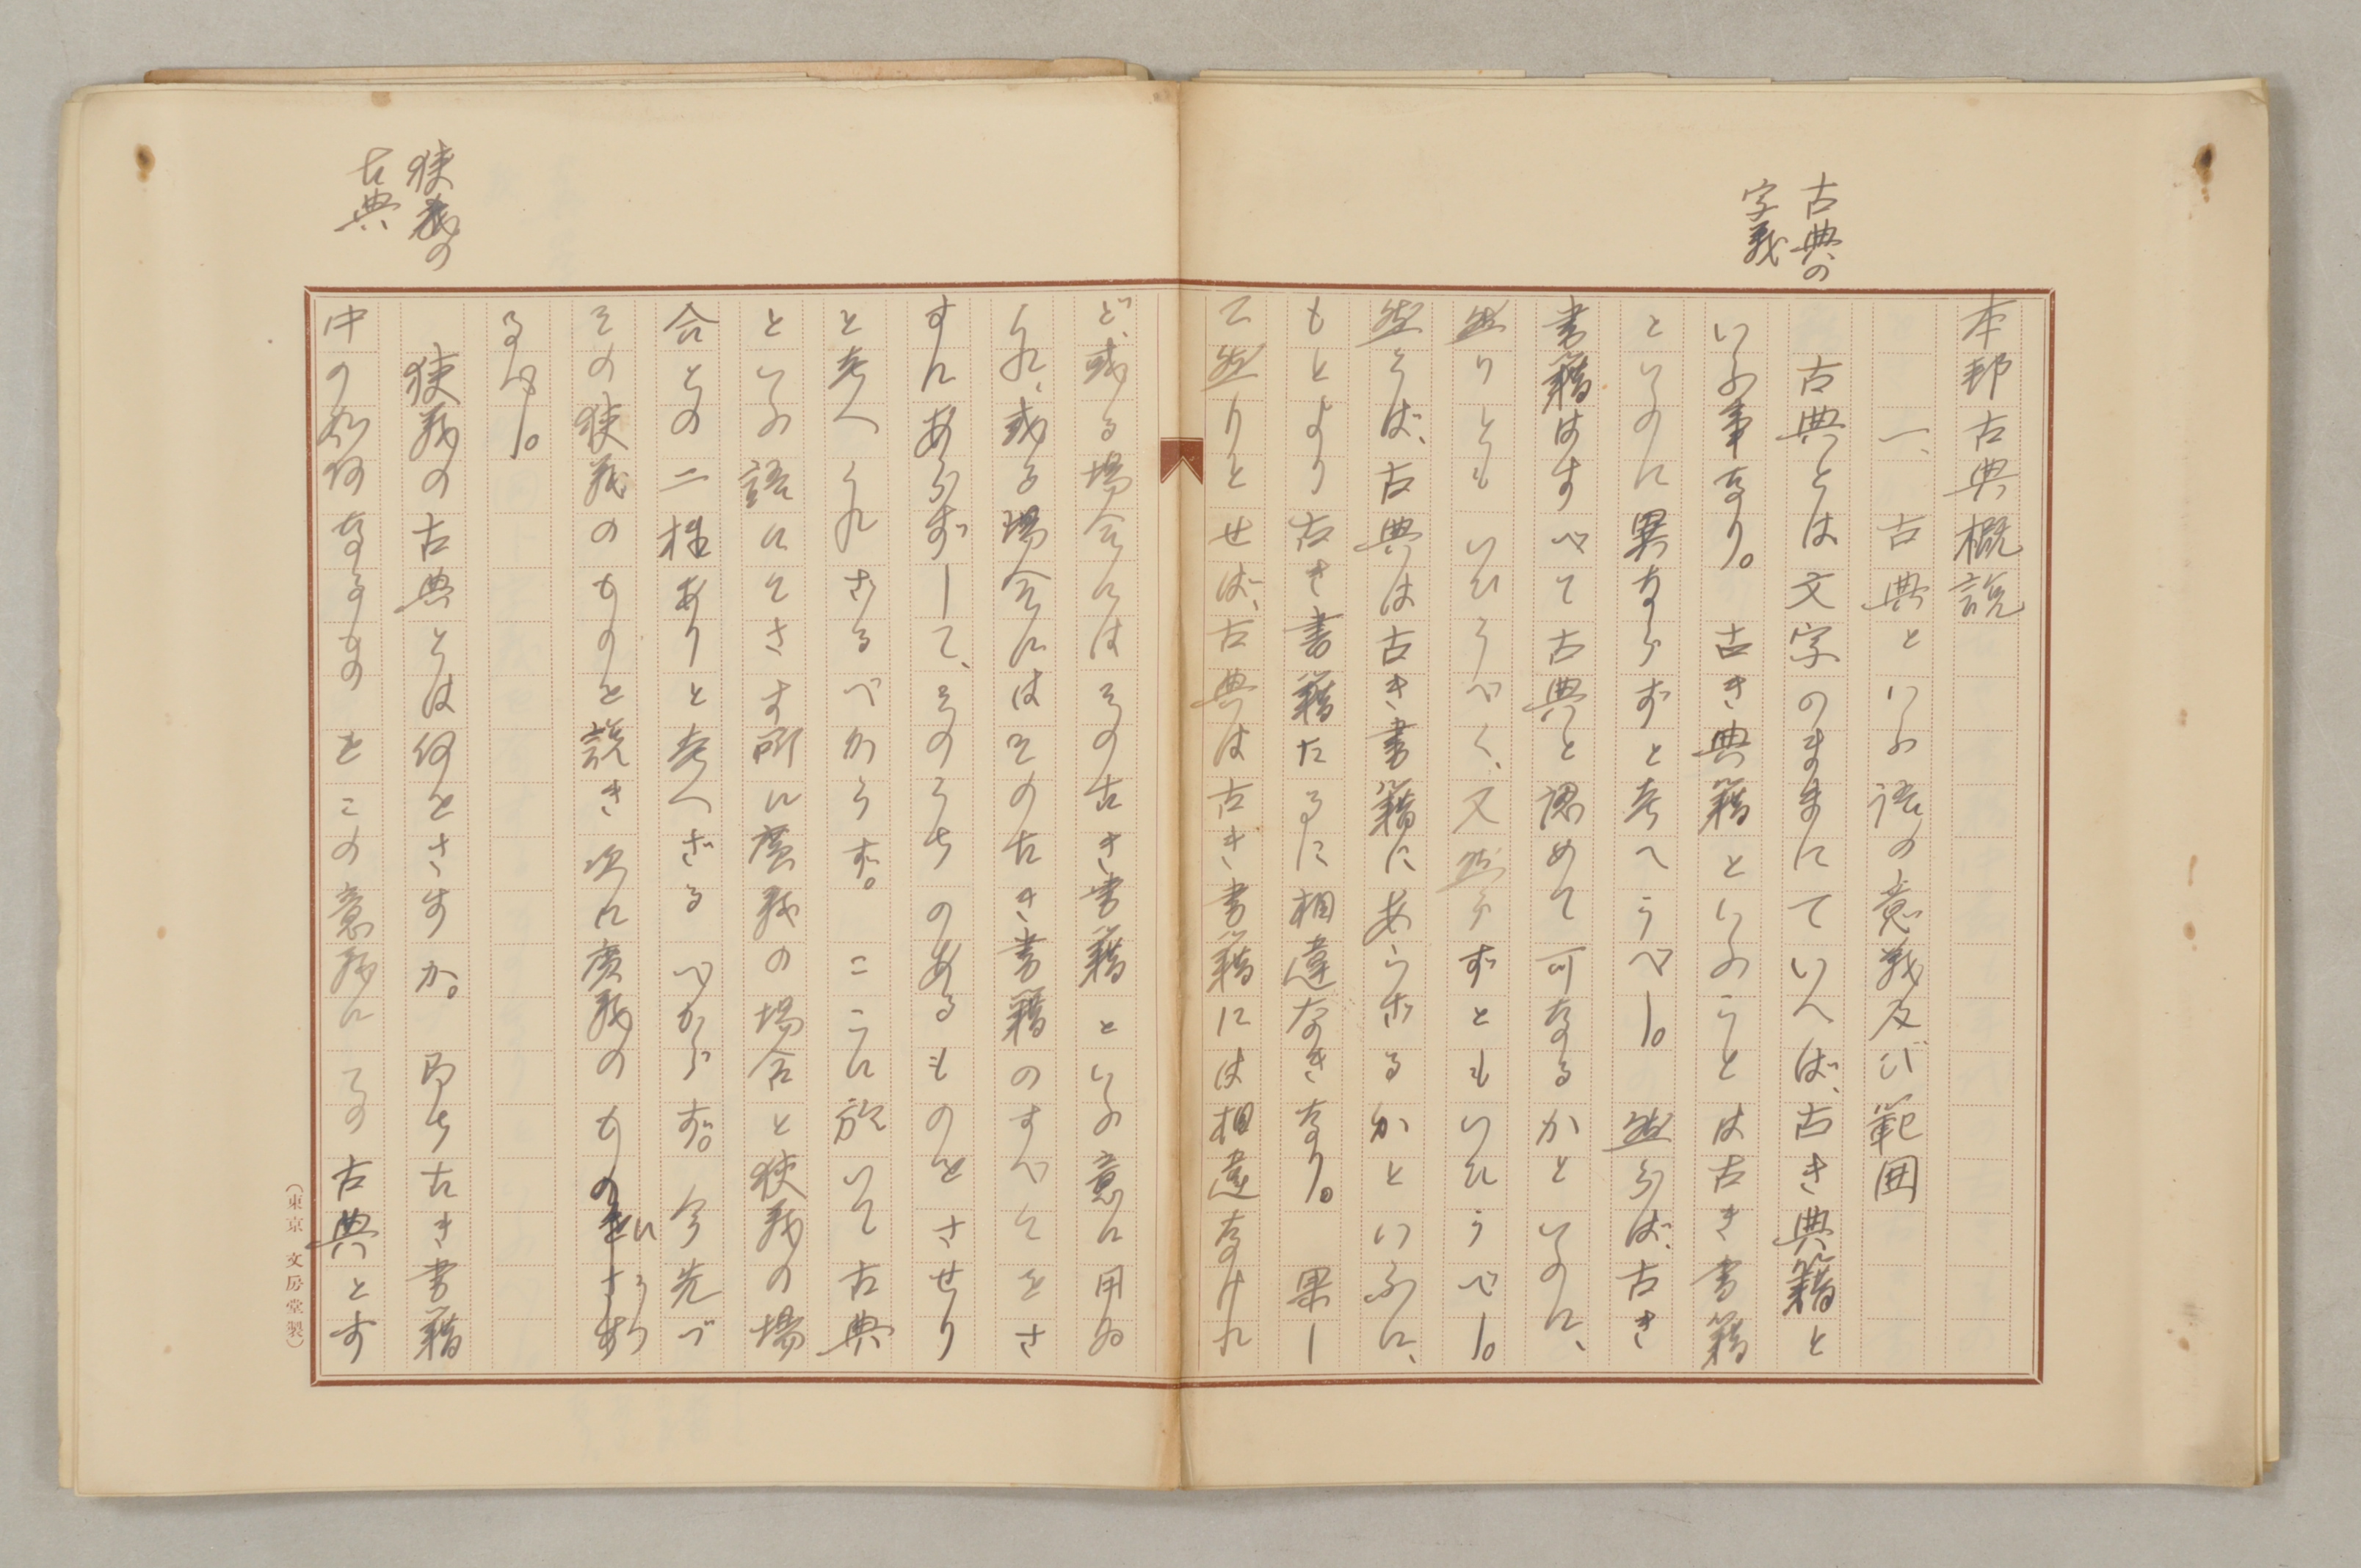 古典の
字義
本邦古典概説
一、古典といふ語の意義及び範囲
古典とは文字のままにていへば、古き典籍と
いふ事なり。古き典籍といふことは古き書籍
といふに異ならずと考へうべし。然らば、古き
書籍はすべて古典と認めて可なるかといふに、
然りともいひうべく、又然らずともいひうべし。
然らば、古典は古き書籍にあらざるかといふに、
もとより古き書籍たるに相違なきなり。果し
て然りとせば、古典は古き書籍には相違なけれ
ど、或る場合にはその古き書籍といふ意に用ゐ
られ、或る場合にはその古き書籍のすべてをさ
すにあらずして、そのうちのあるものをさせり
と考へられざるべからず。ここに於いて古典
といふ語にてさす所に広義の場合と狭義の場
合との二様ありと考へざるべからず。今先づ
その狭義のものを説き次に広義のものに
るべし。
狭義の
古典
狭義の古典とは何をさすか。即ち古き書籍
中の如何なるものをこの意義にての古典とす
（東京 文房堂製）